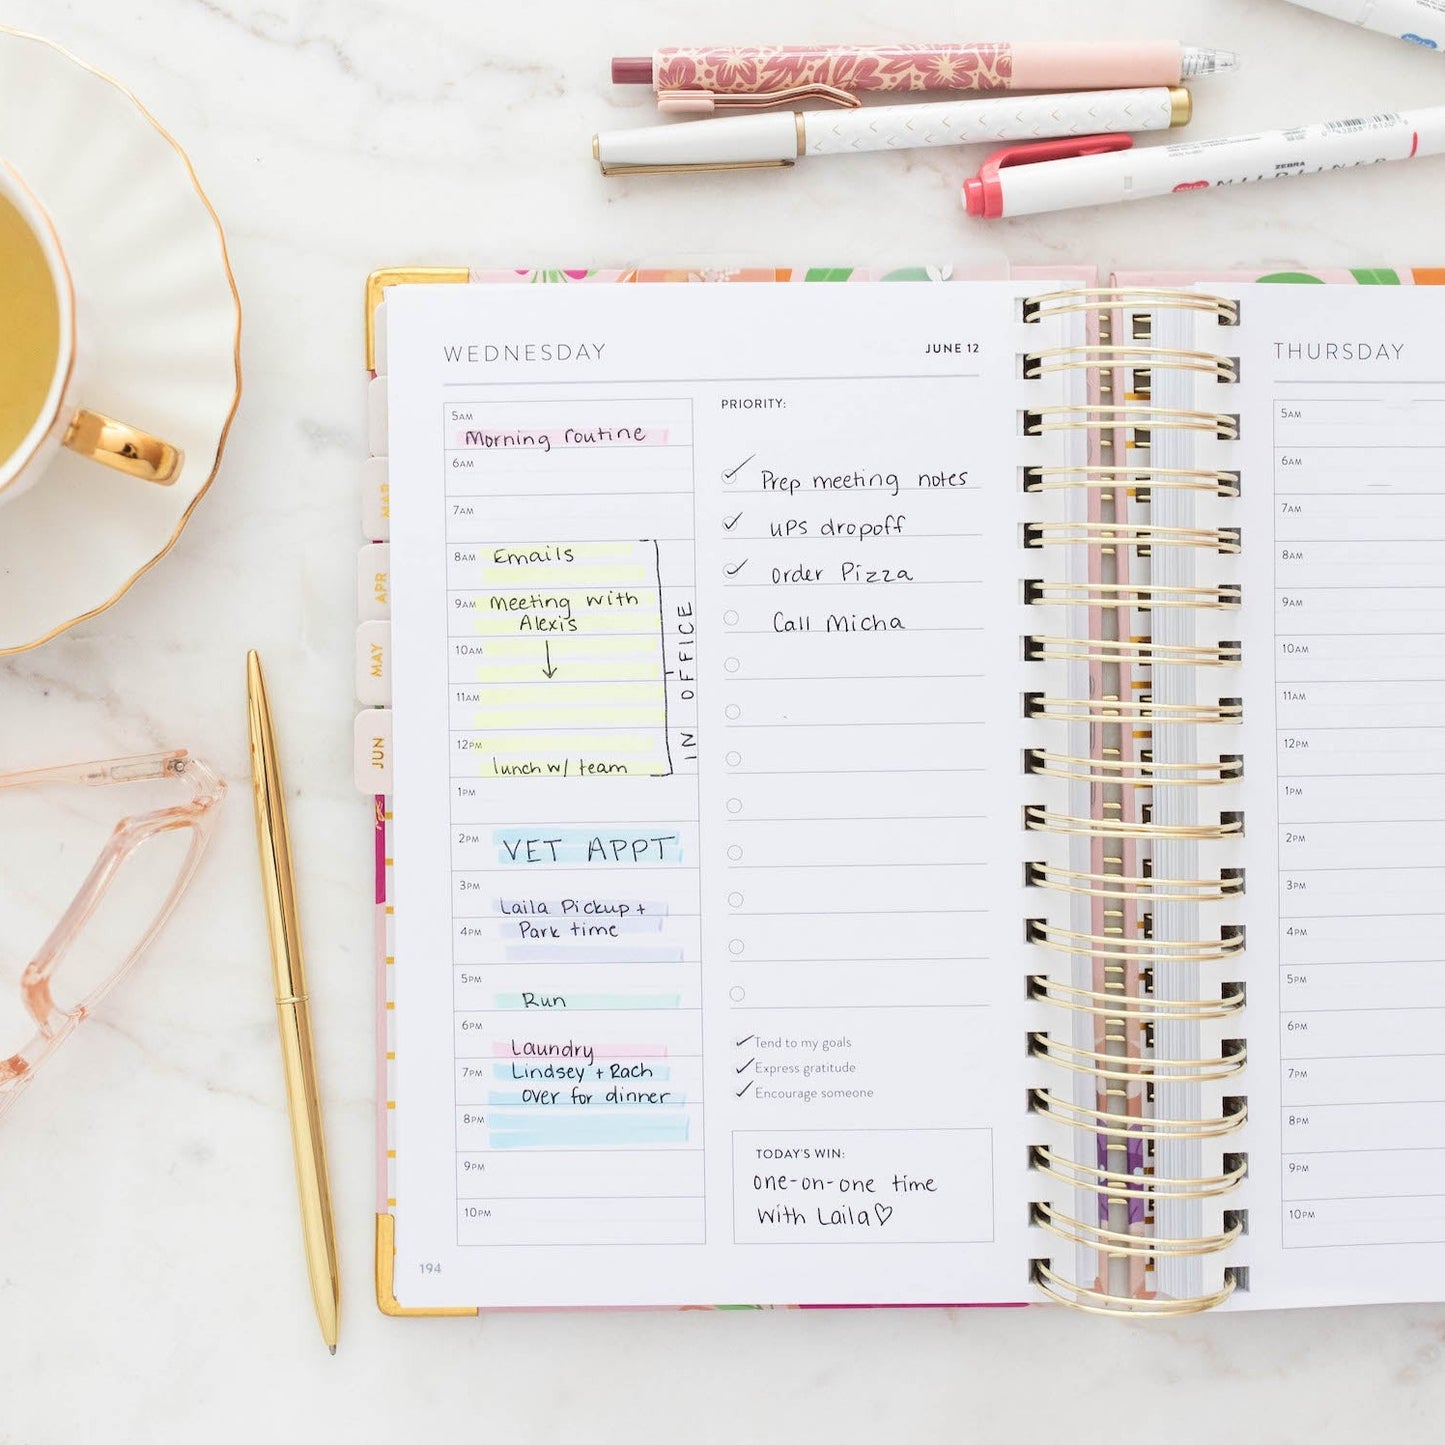 ZEBRA
MILDLINER
WEDNESDAY
JUNE 12
5AM
Morning routine
6AM
7AM
8AM Emails
9AM Meeting with
Alexis
10AM
11AM
12PM
lunch w/ team
IN OFFICE
1PM
2PM VET APPT
3PM
Laila Pickup +
4PM Park time
5PM
Run
6PM
Laundry
7PM Lindsey + Rach
over for dinner
8PM
9PM
10PM
194
PRIORITY:
Prep meeting notes
UPS dropoff
Order Pizza
Call Micha
Tend to my goals
Express gratitude
Encourage someone
TODAY'S WIN:
one-on-one time
with Laila♡
MAR
APR
MAY
JUN
THURSDAY
5AM
6AM
7AM
8AM
9AM
10AM
11AM
12PM
1PM
2PM
3PM
4PM
5PM
6PM
7PM
8PM
9PM
10PM